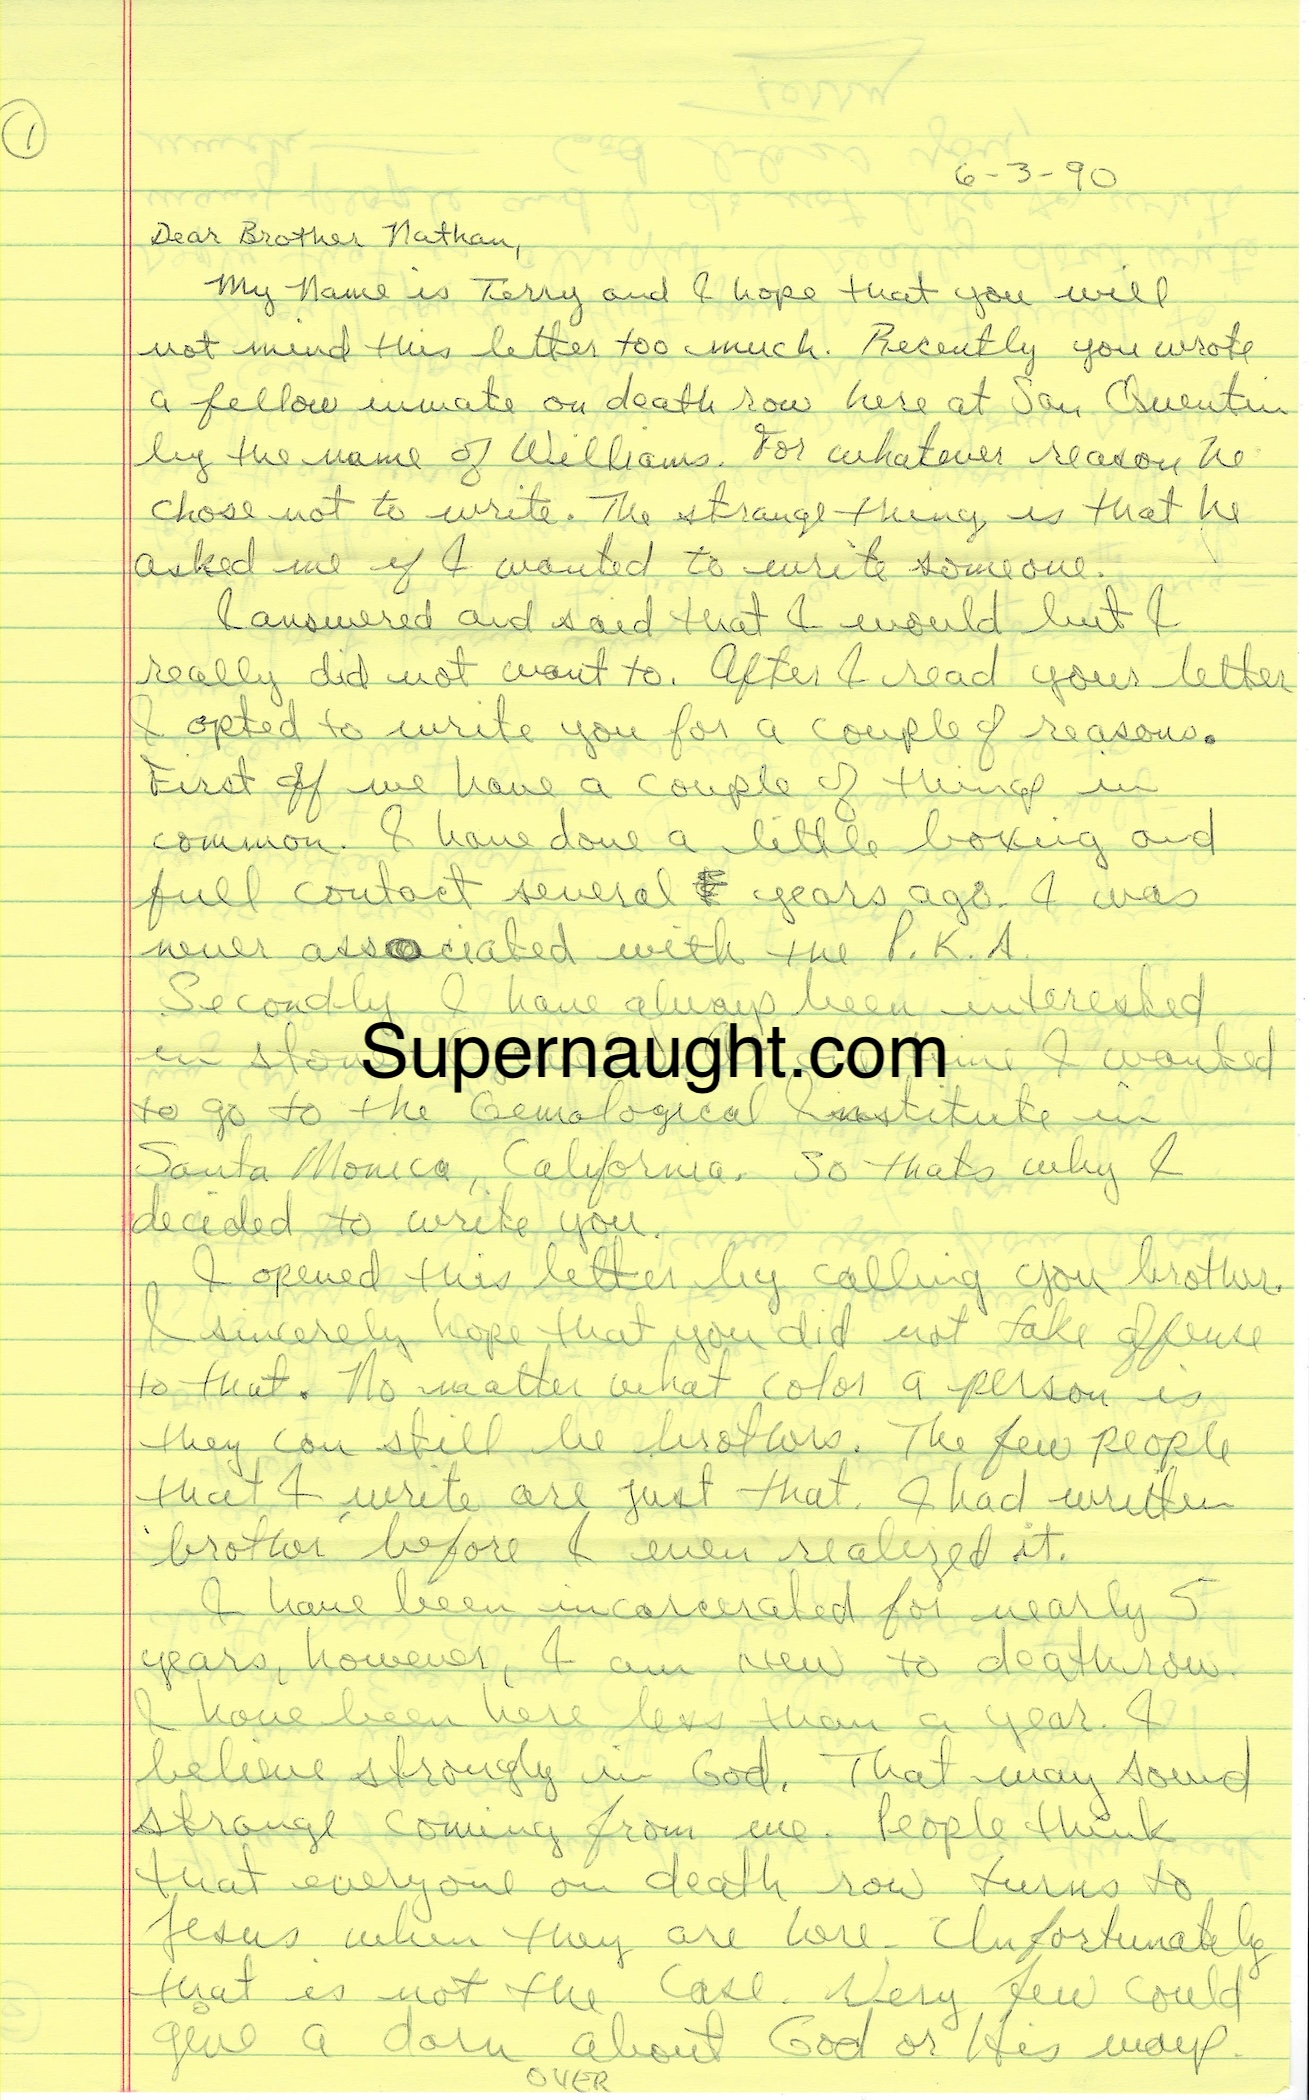 1
6-3-90
Dear Brother Nathan,
My Name is Terry and I hope that you will
not mind this letter too much. Recently you wrote
a fellow inmate on death row here at San Quentin
by the name of Williams. For whatever reason he
chose not to write. The strange thing is that he
asked me if I wanted to write someone.
I answered and said that I would but I
really did not want to. After I read your letter
I opted to write you for a couple of reasons.
First off we have a couple of things in
common. I have done a little boxing and
full contact several years ago. I was
never associated with the P.K.A.
Secondly I have always been interested
in I wanted
Supernaught.com
to go to the Gemological Institute in
Santa Monica, California. So thats why I
decided to write you.
I opened this letter by calling you brother.
I sincerely hope that you did not take offense
to that. No matter what color a person is
they can still be brothers. The few people
that I write are just that. I had written
'brother' before I even realized it.
I have been incarcerated for nearly 5
years, however, I am new to deathrow.
I have been here less than a year. I
believe strongly in God. That may sound
strange coming from me. People think
that everyone on death row turns to
Jesus when they are here. Unfortunately
that is not the case. Very few could
give a darn about God or His ways.
OVER